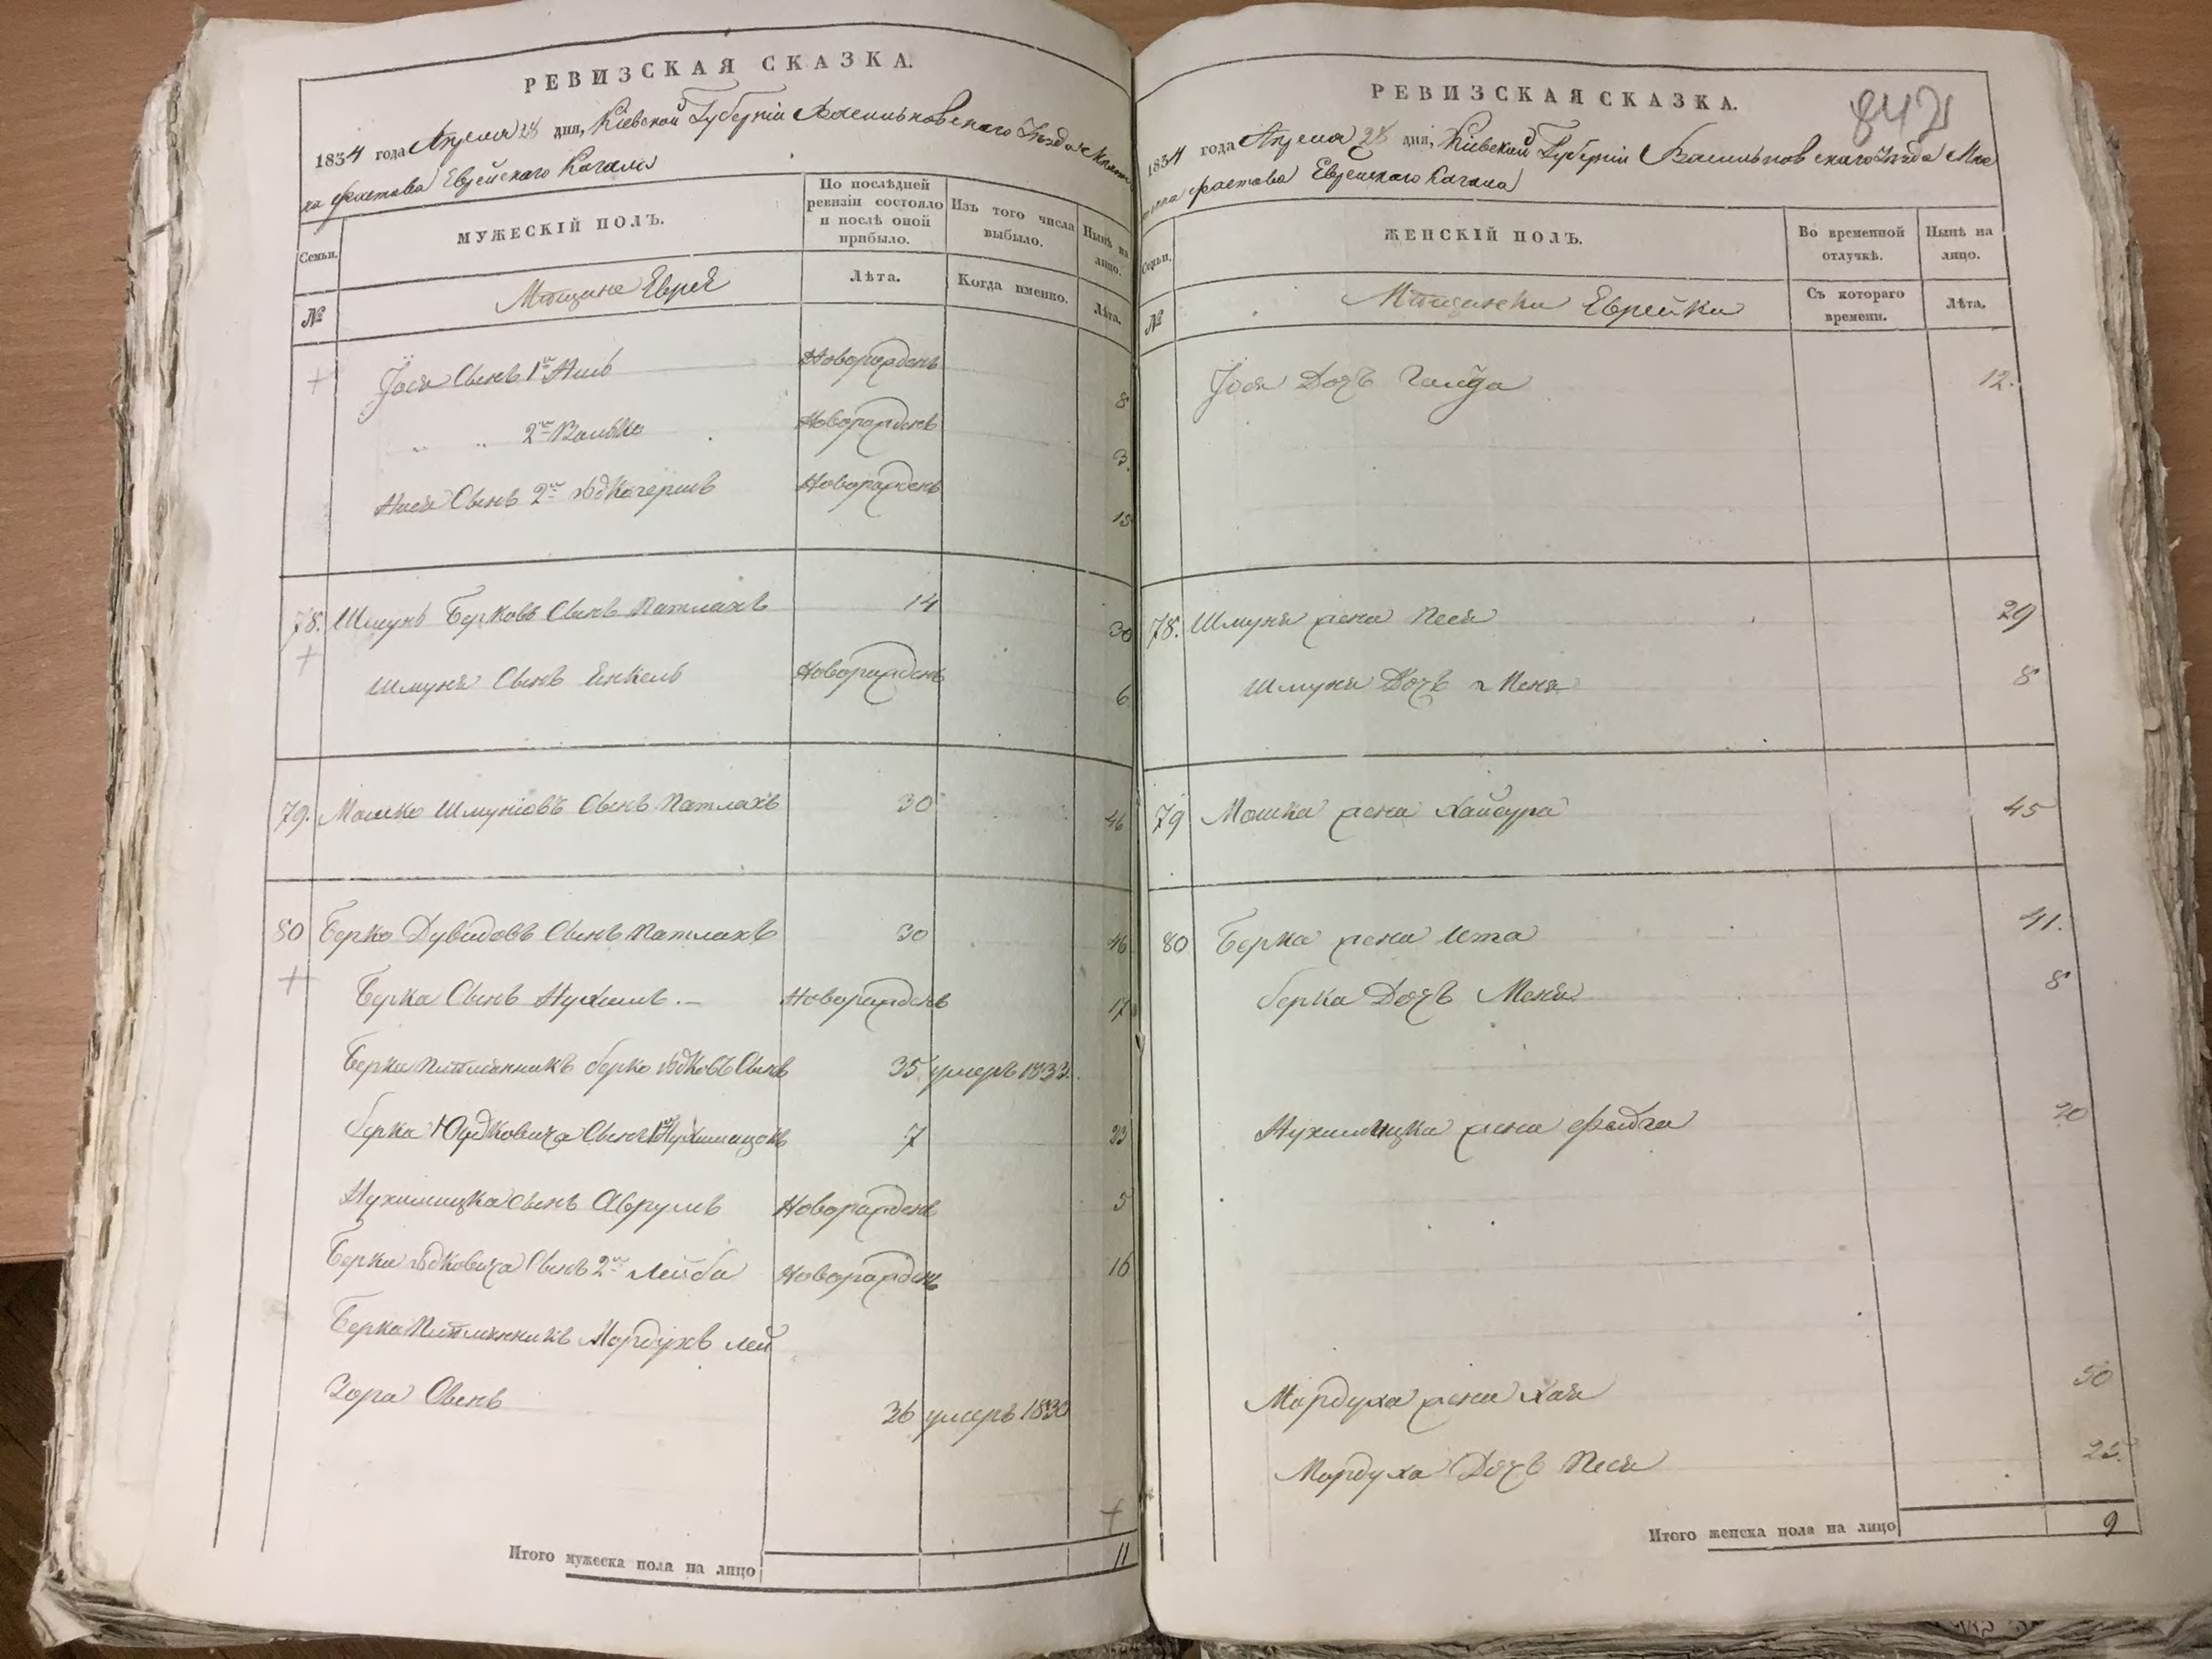 РЕВИЗСКАЯ СКАЗКА.
1834 года Апреля 28 дня, Кіевской Губерніи Васильковскаго Уѣзда Мѣстеч
ка Фастова Еврейскаго Кагала
Семьи.
МУЖЕСКІЙ ПОЛЪ.
По послѣдней
ревизіи состояло
и послѣ оной
прибыло.
Изъ того числа
выбыло.
Нынѣ на
лицо.
№
Мѣщане Евреи
Лѣта.
Когда именно.
Лѣта.
Іося Сынъ 1й Новорожденъ 8
" " 2й Волько Новорожденъ 3.
Сынъ 2й Новорожденъ 15
78. Шмунь Берковъ Сынъ Патлахъ 14 30
Шмуня Сынъ Янкель Новорожденъ 6
79. Мошко Шмуніовъ Сынъ Патлахъ 30 46
80 Берко Дувидовъ Сынъ Патлахъ 30 46
Берка Сынъ Нухимъ. — Новорожденъ 17
Берки Племянникъ Берко Юдковъ Сынъ 35 умеръ 1833.
Берка Юдковича Сынъ 1й Нухимицокъ 7 23
Нухимицка сынъ Аврумъ Новорожденъ 5
Берки Юдковича Сынъ 2й Лейба Новорожденъ 16
Берка Племянникъ Мордухъ Лей
Зора Сынъ 36 умеръ 1830
Итого мужеска пола на лицо 11
РЕВИЗСКАЯ СКАЗКА.
842
1834 года Апреля 28 дня, Кіевской Губерніи Васильковскаго Уѣзда Мѣс
течка Фастова Еврейскаго Кагала
Семьи.
ЖЕНСКІЙ ПОЛЪ.
Во временной
отлучкѣ.
Нынѣ на
лицо.
№
Мѣщанки Еврейки
Съ котораго
времени.
Лѣта.
Іося Дочь 12.
78. Шмуня жена Песя 29
Шмуня Дочь 8
79 Мошка жена Хайсура 45
80 Берка жена Ита 41.
Берка Дочь Меня 8
Нухимицка жена Фейга 20
Мордуха жена Хая 50
Мордуха Дочь Песя 25.
Итого женска пола на лицо 9